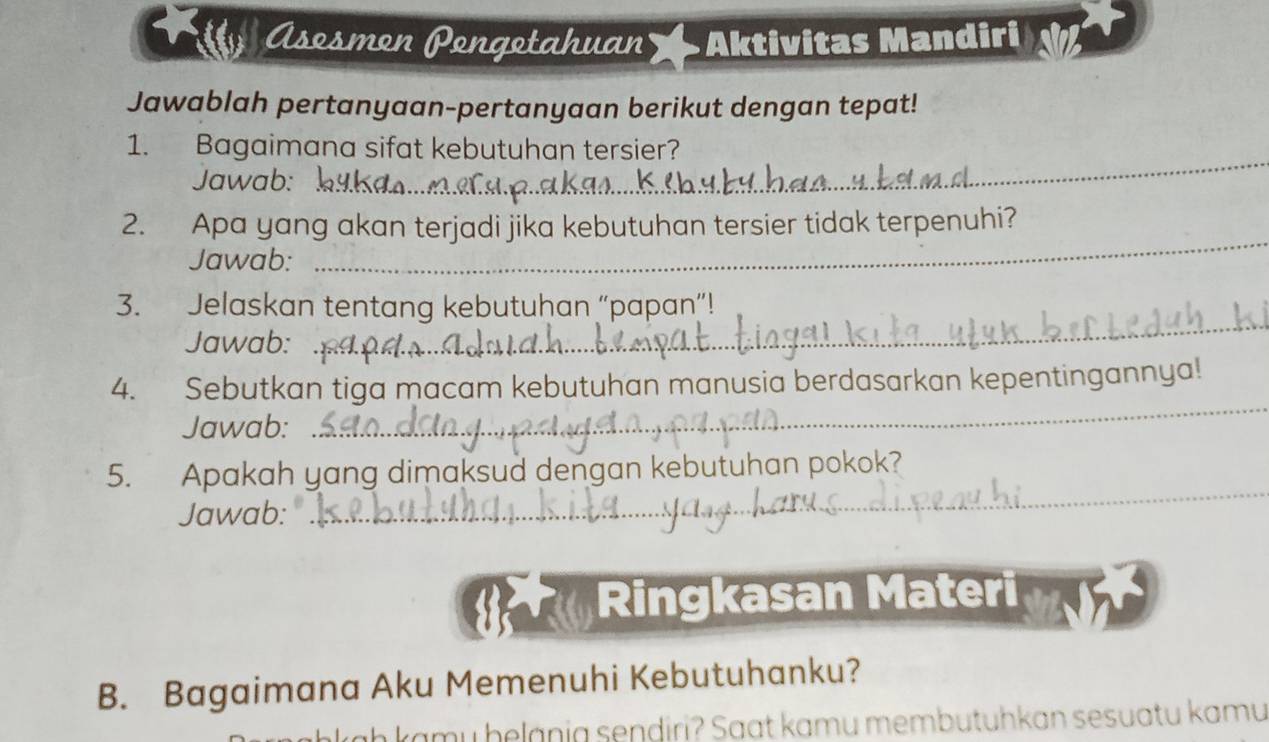 Asesmen Pengetahuan Aktivitas Mandiri
Jawablah pertanyaan-pertanyaan berikut dengan tepat!
1. Bagaimana sifat kebutuhan tersier?
Jawab: bukan merupakan kebutuhan utama
2. Apa yang akan terjadi jika kebutuhan tersier tidak terpenuhi?
Jawab:
3. Jelaskan tentang kebutuhan "papan"!
Jawab: papan adalah tempat tingal kita utuk berteduh ki
4. Sebutkan tiga macam kebutuhan manusia berdasarkan kepentingannya!
Jawab: sandang, pangan, papan
5. Apakah yang dimaksud dengan kebutuhan pokok?
Jawab: kebutuhan kita yang harus dipenuhi
Ringkasan Materi
B. Bagaimana Aku Memenuhi Kebutuhanku?
kamu belanja sendiri? Saat kamu membutuhkan sesuatu kamu